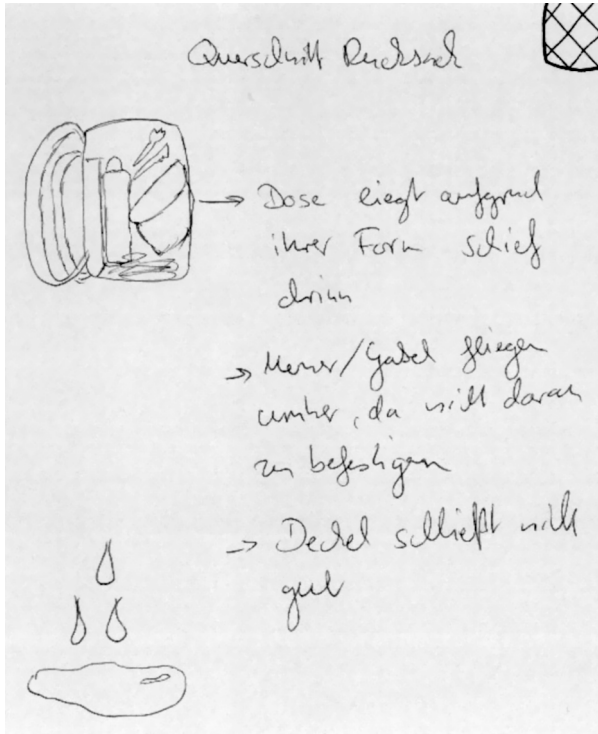 Querschnitt Rucksack
→ Dose liegt aufgrund
ihrer Form schief
drinn
→ Messer/Gabel fliegen
umher, da nicht daran
zu befestigen
→ Deckel schließt nicht
gut